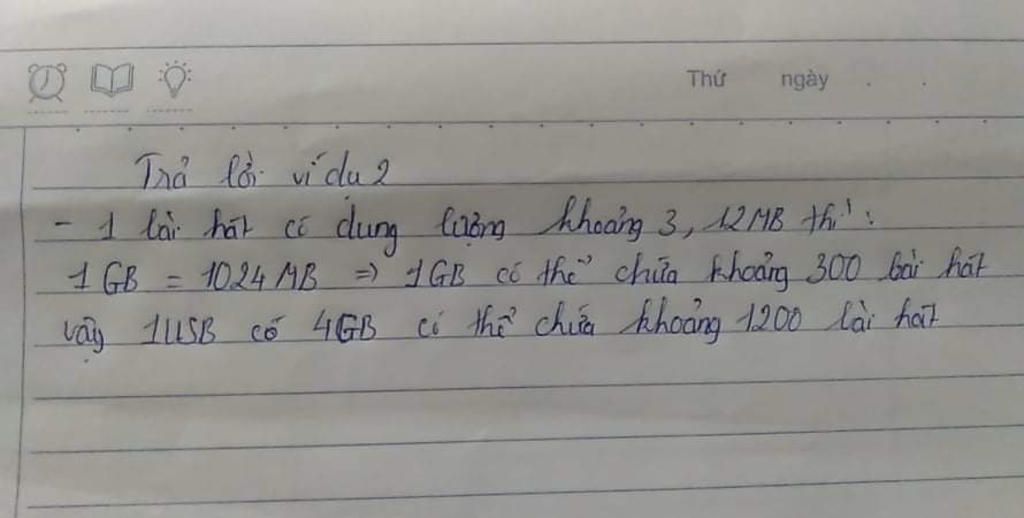 Thứ ngày . .
Trả lời ví dụ 2
- 1 bài hát có dung lượng khoảng 3,12MB thì :
1 GB = 1024 MB => 1GB có thể chứa khoảng 300 bài hát
vậy 1USB có 4GB có thể chứa khoảng 1200 bài hát